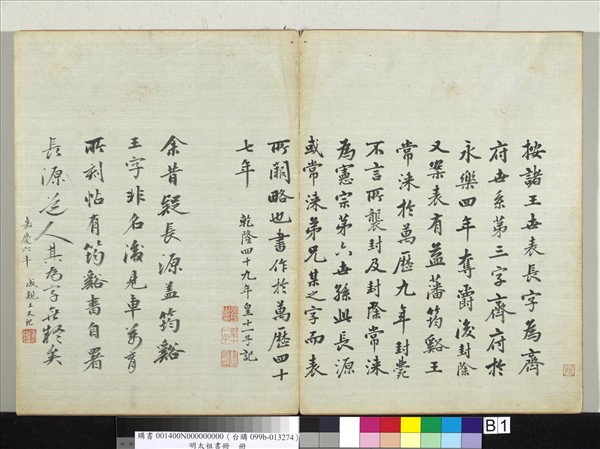 按諸王世表長字為齊
府世系第三字齊府於
永樂四年奪爵後封除
又案表有益藩筠谿王
常涞於萬歷九年封薨
不言所襲封及封除常涞
為憲宗第六世孫此長源
或常涞弟兄某之字而表
所闕略也書作於萬歷四十
七年 乾隆四十九年皇十一子記
余昔疑長源蓋筠谿
王字非名後見車萬育
所刻帖有筠谿書自署
長源道人其為字無疑矣
嘉慶六年 成親王又記
購書 001400N000000000 (台購 099b-013274)
明太祖書冊 冊
B 1